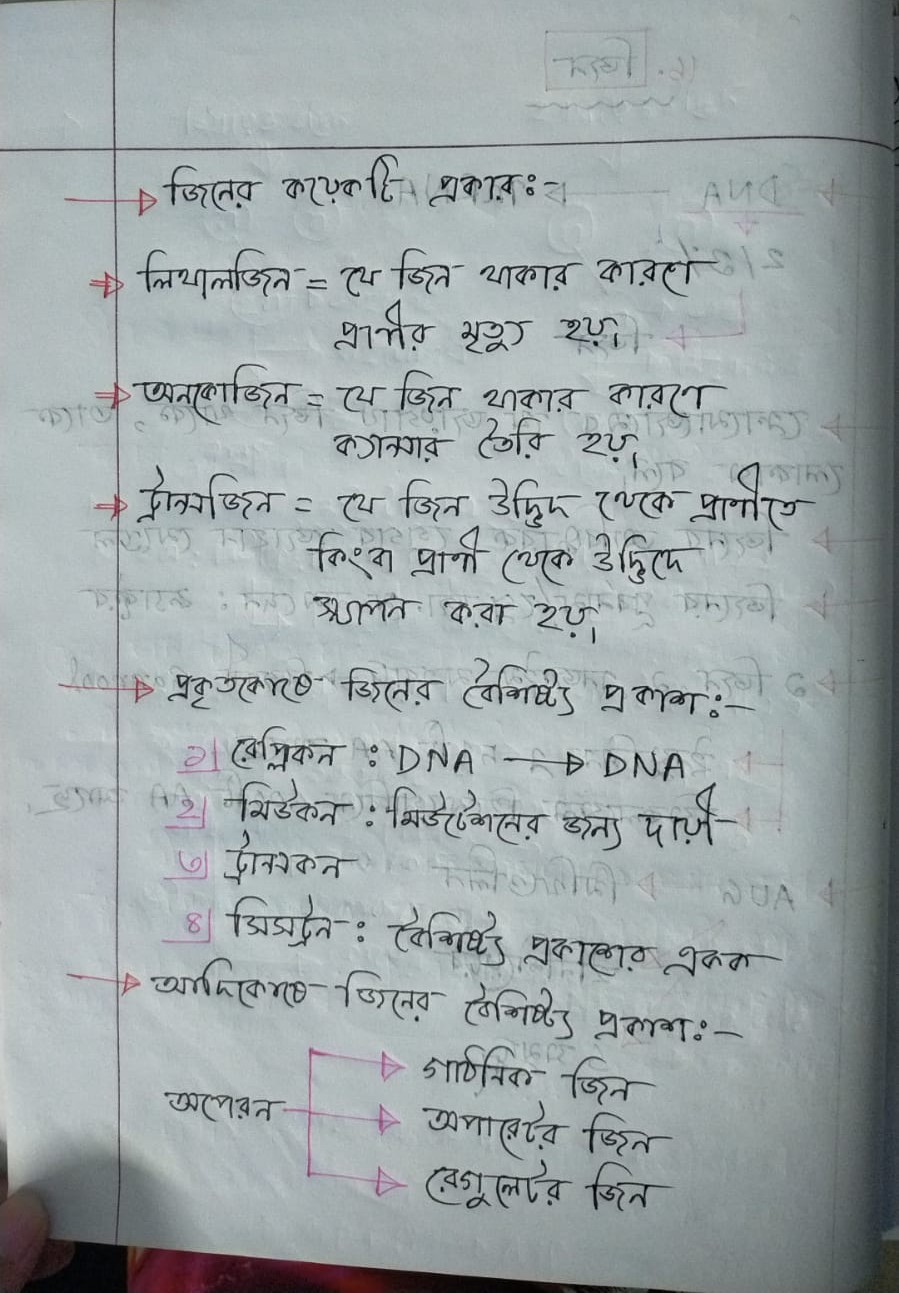 জিনের কয়েকটি প্রকারঃ-
লিথালজিন = যে জিন থাকার কারণে
প্রাণীর মৃত্যু হয়।
অনকোজিন = যে জিন থাকার কারণে
ক্যানসার তৈরি হয়।
ট্রান্সজিন = যে জিন উদ্ভিদ থেকে প্রাণীতে
কিংবা প্রাণী থেকে উদ্ভিদে
স্থাপন করা হয়।
প্রকৃতকোষে জিনের বৈশিষ্ট্য প্রকাশঃ-
১| রেপ্লিকন : DNA → DNA
২| মিউকন : মিউটেশনের জন্য দায়ী
৩| ট্রান্সকন
৪| সিসট্রন : বৈশিষ্ট্য প্রকাশের একক
আদিকোষে জিনের বৈশিষ্ট্য প্রকাশঃ-
গাঠনিক জিন
অপেরন → অপারেটর জিন
রেগুলেটর জিন